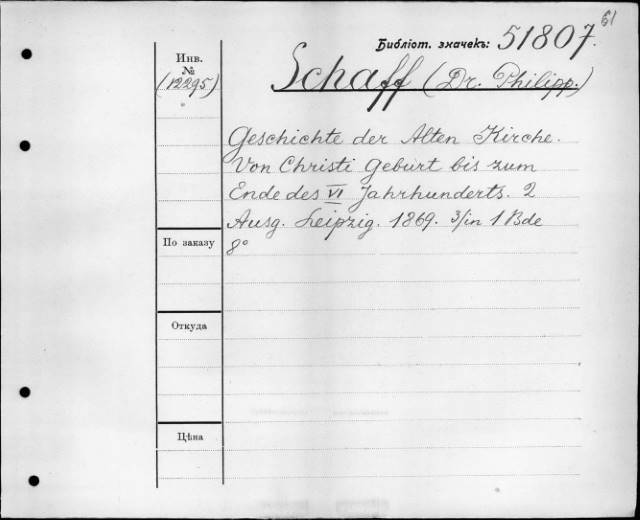 61
Библіот. значекъ: 51807.
Инв.
№
(12295)
Schaff (Dr. Philipp.)
Geschichte der Alten Kirche.
Von Christi Geburt bis zum
Ende des VI Jahrhunderts. 2
Ausg. Leipzig. 1869. 3/in 1 Bde
8°
По заказу
Откуда
Цѣна